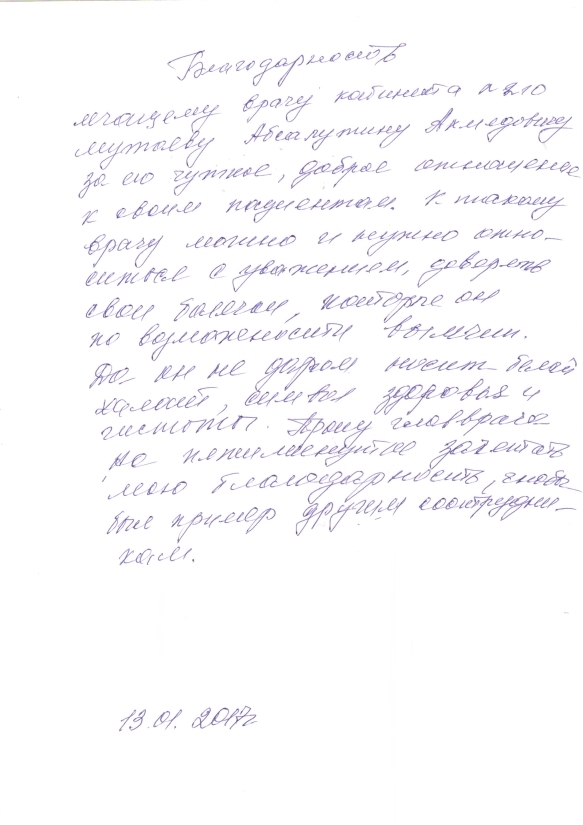 Благодарность
лечащему врачу кабинета №210
Мутаеву Абсалутдину Ахмедовичу
за его чуткое, доброе отношение
к своим пациентам. К такому
врачу можно и нужно отно-
ситься с уважением, доверять
свои болячки, которые он
по возможености вылечит.
Да он не даром носит белый
халат, символ здоровья и
чистоты. Прошу главврача
на пятиминутке зачитать
мою благодарность, чтобы
был пример другим соотрудни-
кам.
13.01.2017г